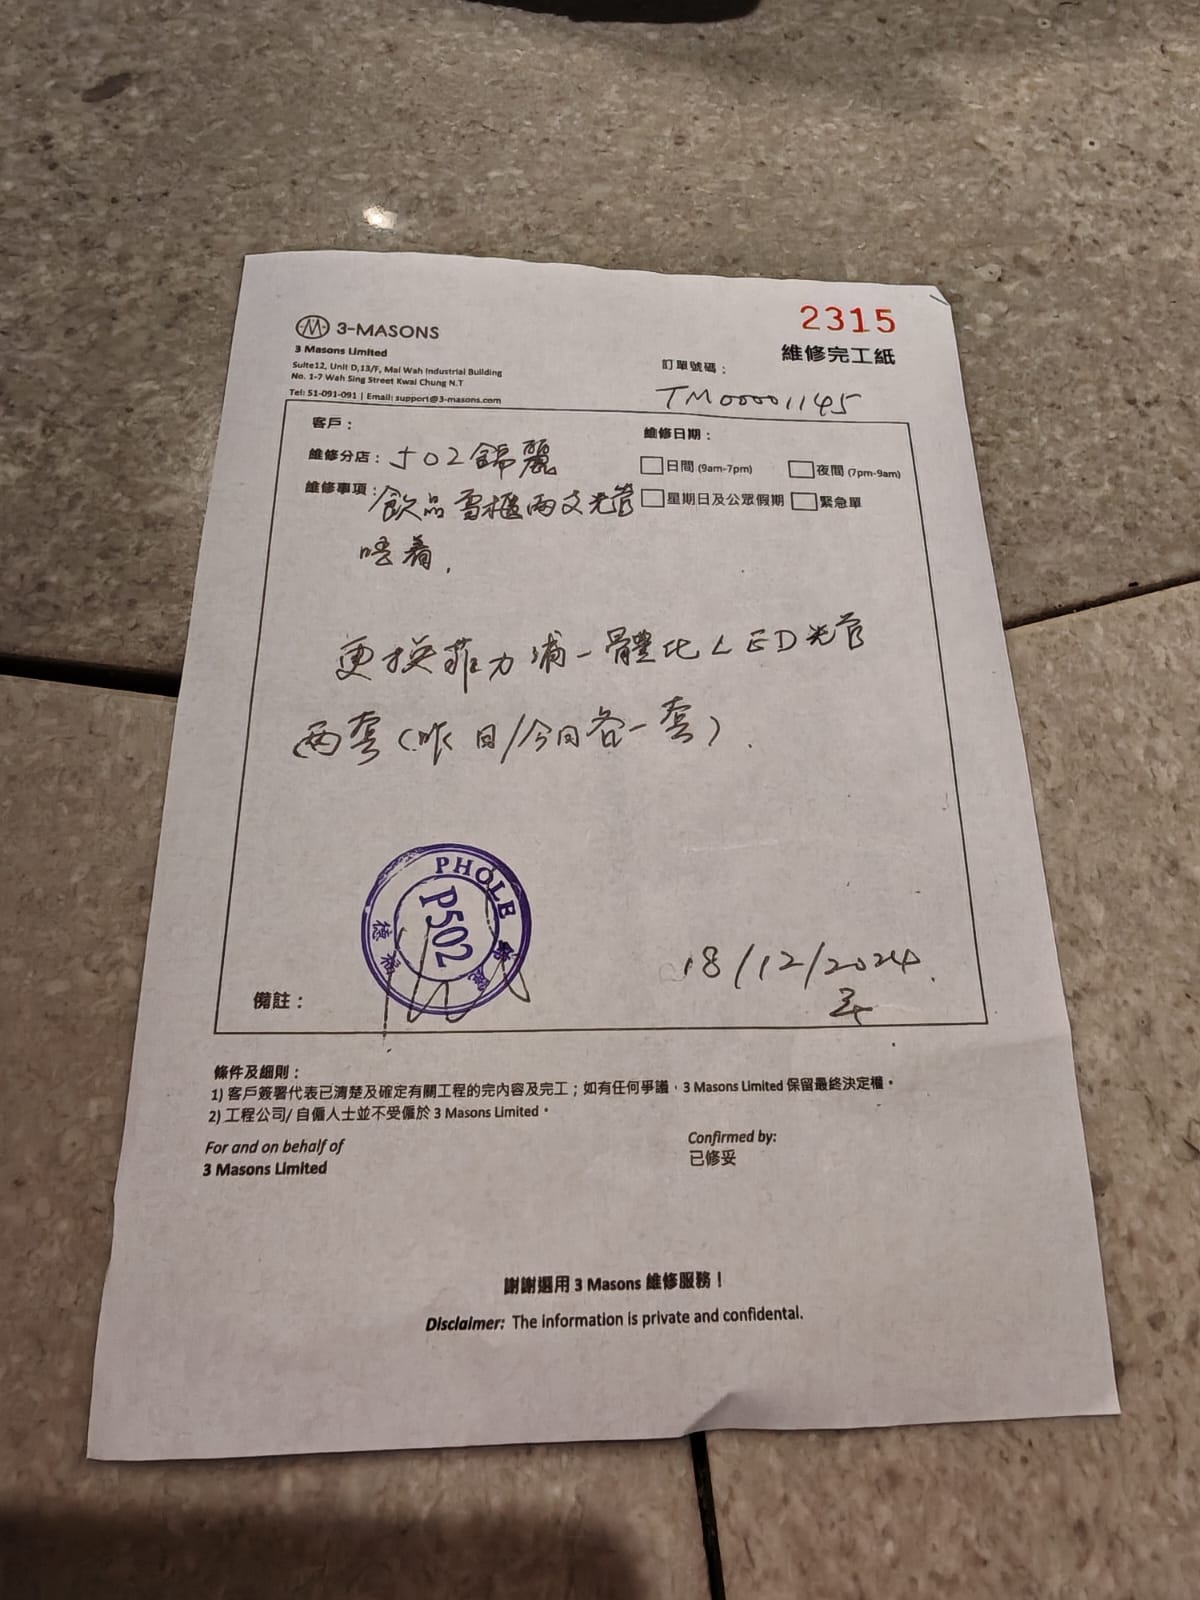 3-MASONS
2315
3 Masons Limited
維修完工紙
Suite12, Unit D,13/F, Mai Wah Industrial Building
No. 1-7 Wah Sing Street Kwai Chung N.T
訂單號碼：
Tel: 51-091-091 | Email: support@3-masons.com
TM00001145
客戶：
維修日期：
維修分店：502錦麗
日間 (9am-7pm) 夜間 (7pm-9am)
維修事項：飲品雪櫃兩支光管
星期日及公眾假期 緊急單
唔着，
更換菲力浦一體化LED光管
兩套(昨日/今日各一套).
PHOLE
P502
18/12/2024.
備註：
條件及細則：
1) 客戶簽署代表已清楚及確定有關工程的完內容及完工；如有任何爭議，3 Masons Limited 保留最終決定權。
2) 工程公司/ 自僱人士並不受僱於 3 Masons Limited。
For and on behalf of
3 Masons Limited
Confirmed by:
已修妥
謝謝選用 3 Masons 維修服務！
Disclaimer: The information is private and confidental.